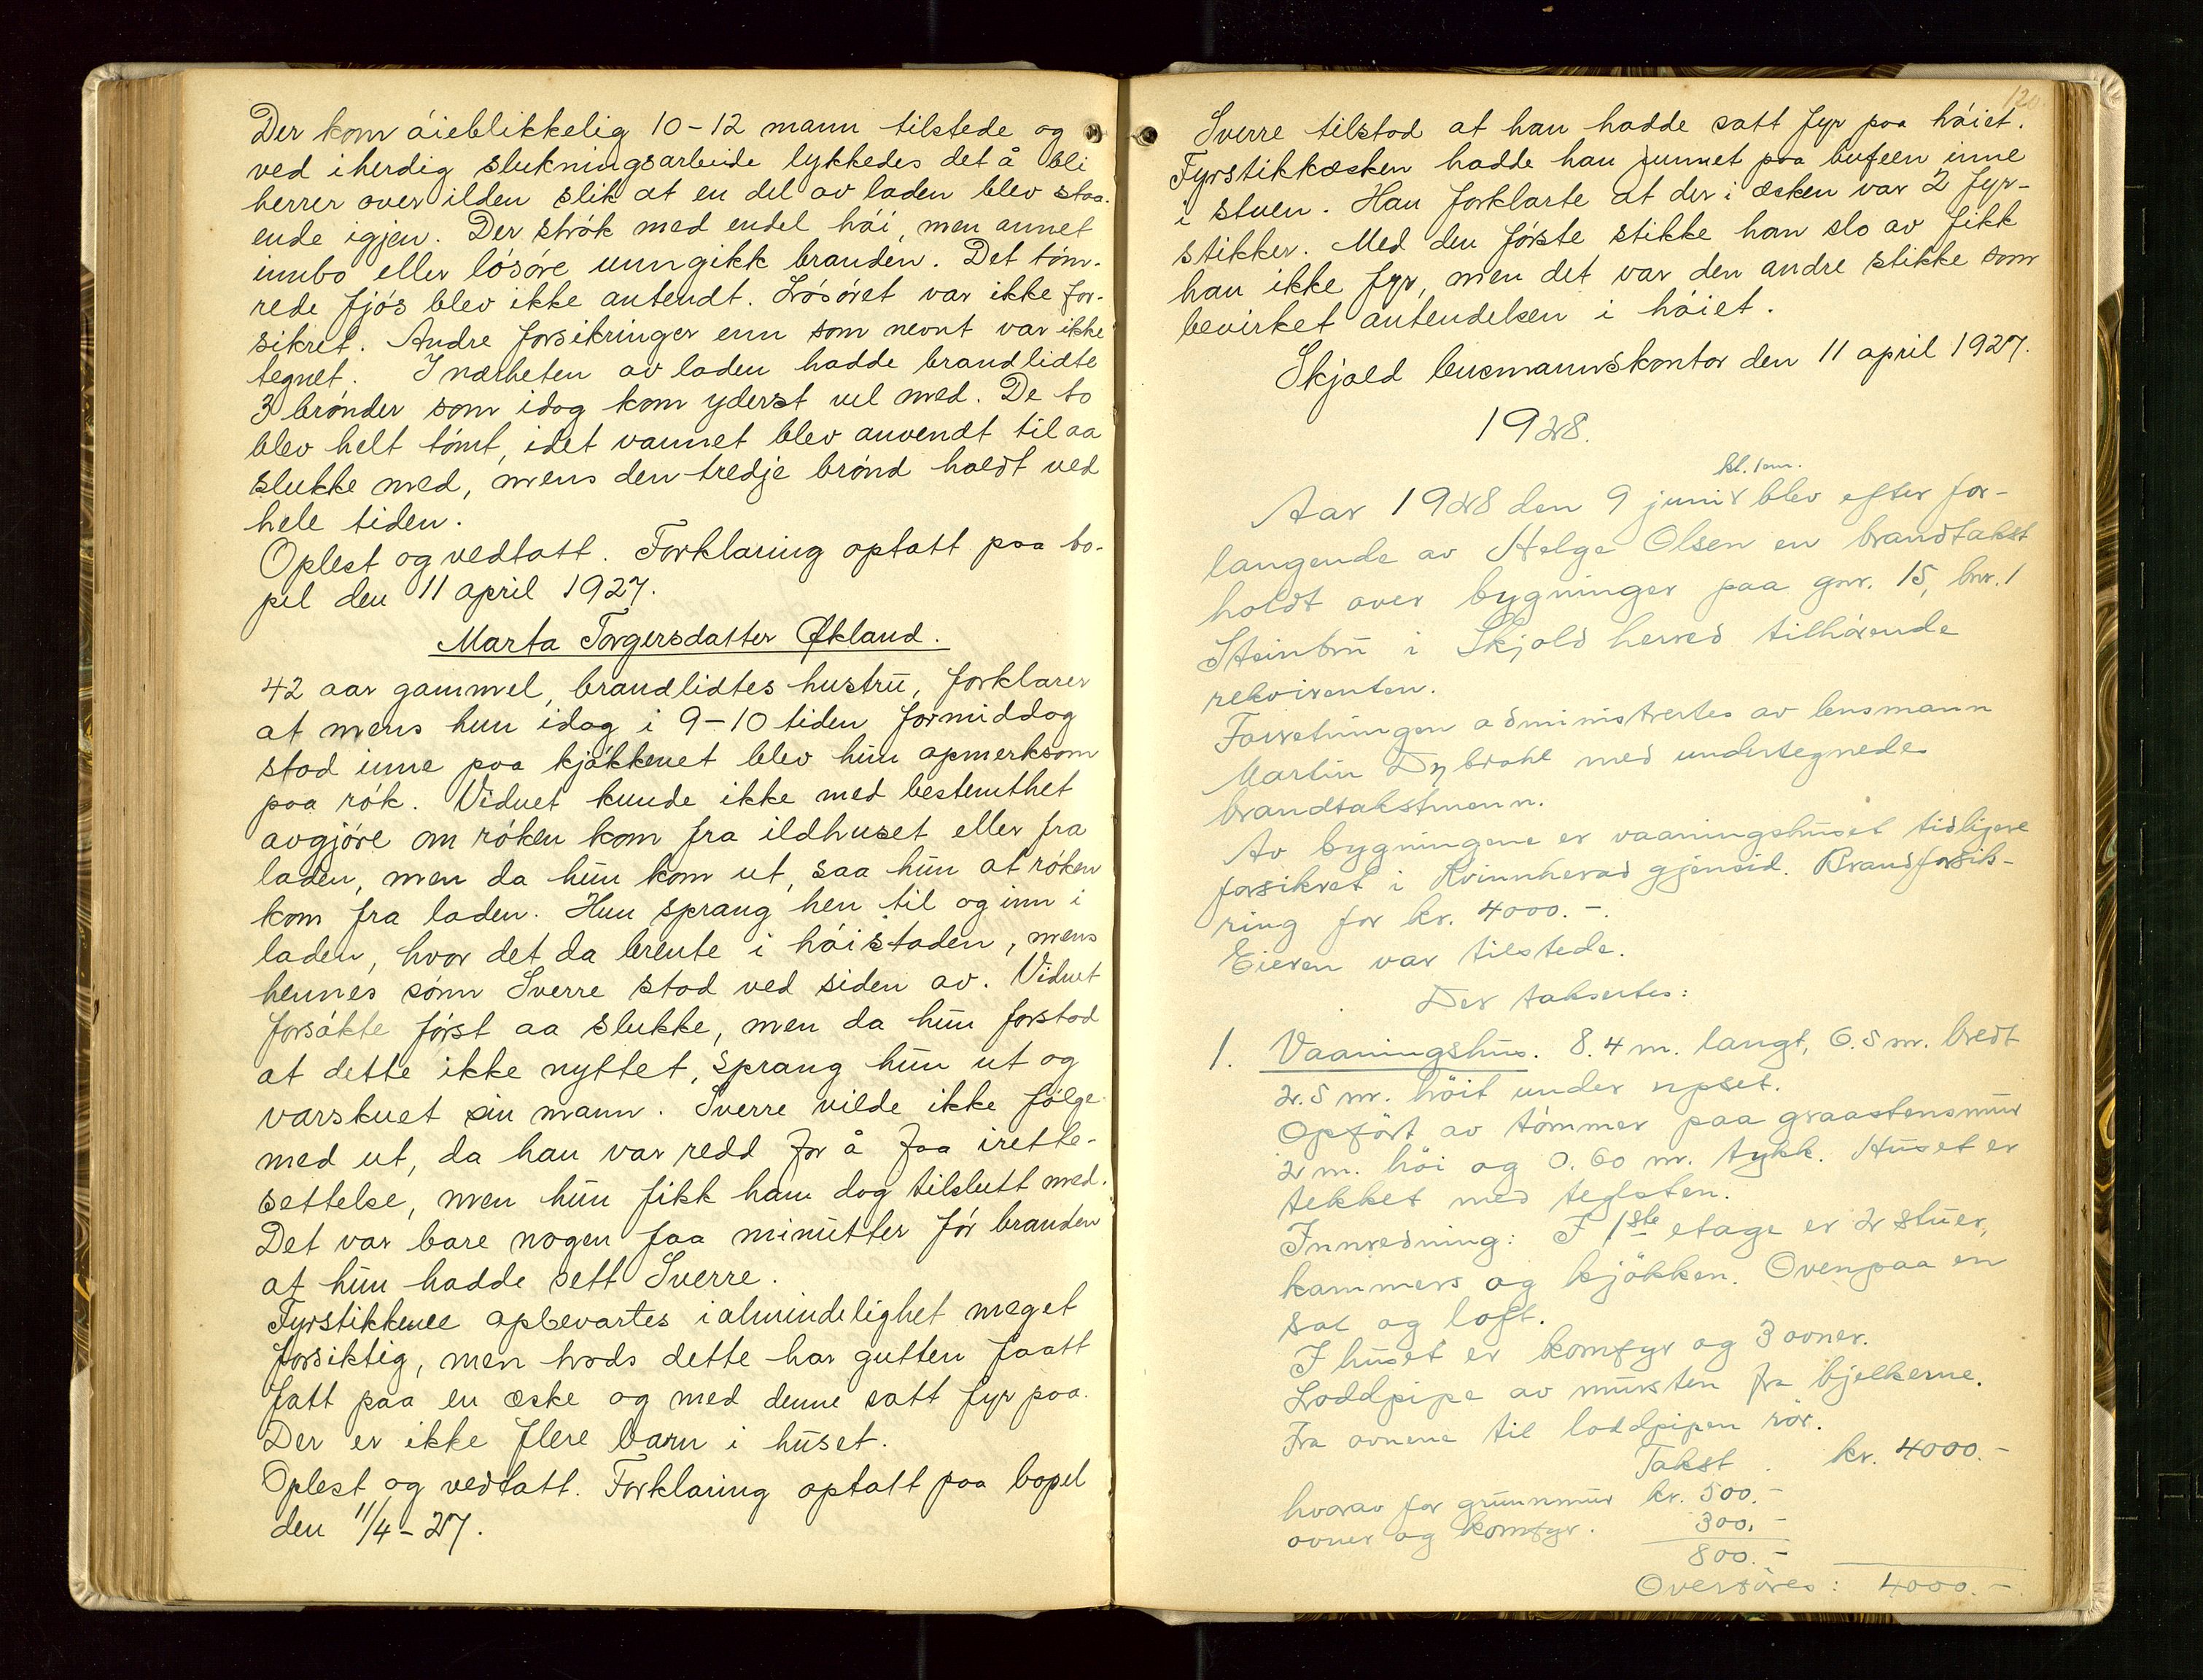 Der kom óieblikkelig 10-12 mann tilstede og
ved iherdig slukningsarbeide lykkedes det å bli
herrer over ilden slik at en del av laden blev staa-
ende igjen. Der strók med endel hói, men annet
innbo eller lósóre unngikk branden. Det tóm-
rede fjós blev ikke antendt. Lósóret var ikke for-
sikret. Andre forsikringer enn som nevnt var ikke
tegnet. I nærheten av laden hadde brandlidte
3 brónder som idag kom yderst vel med. De to
blev helt tómt, idet vannet blev anvendt til aa
slukke med, mens den tredje brónd holdt ved
hele tiden.
Oplest og vedtatt. Forklaring optatt paa bo-
pel den 11 april 1927.
Marta Torgersdatter Økland.
42 aar gammel, brandlidtes hustru, forklarer
at mens hun idag i 9-10 tiden formiddag
stod inne paa kjókkenet blev hun opmerksom
paa rók. Vidnet kunde ikke med bestemthet
avgjóre om róken kom fra ildhuset eller fra
laden, men da hun kom ut, saa hun at róken
kom fra laden. Hun sprang hen til og inn i
laden, hvor det da brente i hóistaden, mens
hennes sónn Sverre stod ved siden av. Vidnet
forsókte fórst aa slukke, men da hun forstod
at dette ikke nyttet, sprang hun ut og
varskuet sin mann. Sverre vilde ikke fólge
med ut, da han var redd for å faa irette-
settelse, men hun fikk ham dog tilslutt med.
Det var bare nogen faa minutter fór branden
at hun hadde sett Sverre.
Fyrstikkene opbevartes i almindelighet meget
forsiktig, men trods dette har gutten faatt
fatt paa en æske og med denne satt fyr paa.
Der er ikke flere barn i huset.
Oplest og vedtatt. Forklaring optatt paa bopel
den 11/4-27.
120.
Sverre tilstod at han hadde satt fyr paa hóiet.
Fyrstikkæsken hadde han funnet paa bufeen inne
i stuen. Han forklarte at der i æsken var 2 fyr-
stikker. Med den fórste stikke han slo av fikk
han ikke fyr, men det var den andre stikke som
bevirket antendelsen i hóiet.
Skjold lensmannskontor den 11 april 1927.
1928.
kl. 1 em.
Aar 1928 den 9 juni blev efter for-
langende av Helge Olsen en brandtakst
holdt over bygninger paa gnr. 15, bnr. 1
Steinbru i Skjold herred tilhórende
rekvirenten.
Forretningen administrertes av lensmann
Martin Dybdahl med undertegnede
brandtakstmenn.
Av bygningene er vaaningshuset tidligere
forsikret i Kvinnherad gjensid. Brandforsik-
ring for kr. 4000.-.
Eieren var tilstede.
Der taksertes:
1. Vaaningshus. 8.4 m. langt, 6.5 m. bredt
2.5 m. höit under upset.
Opfört av tómmer paa graastensmur
2 m. höi og 0.60 m. tykk. Huset er
tekket med teglsten.
Innredning: I 1ste etage er 2 stuer,
kammers og kjökken. Ovenpaa en
sal og loft.
I huset er komfyr og 3 ovner.
Loddpipe av mursten fra bjelkerne.
Fra ovnene til loddpipen rör.
Takst . kr. 4000.-
hvorav for grunnmur kr. 500.-
ovner og komfyr. 300.-
800.-
Overföres: 4000.-